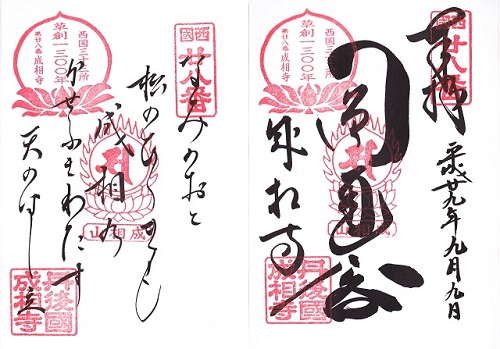 西國
廿八番
なみのおと
松のひゞきも
成相の
風ふきわたす
天のはし立
西国三十三所
草創一三〇〇年
第廿八番成相寺
成相山
丹後國
成相寺
西國
廿八番
奉拝
平成廿九年九月九日
成相寺
西国三十三所
草創一三〇〇年
第廿八番成相寺
成相山
丹後國
成相寺